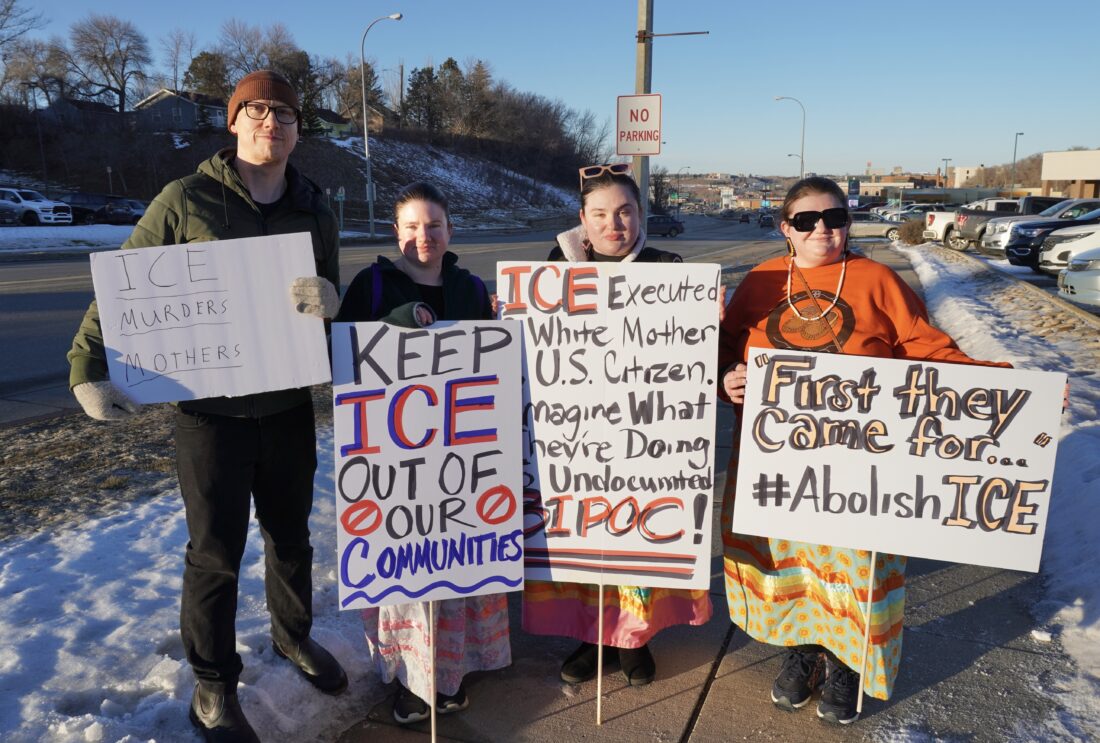 NO
PARKING
ICE
MURDERS
MOTHERS
KEEP
ICE
OUT OF
OUR
COMMUNITIES
ICE Executed
White Mother
U.S. Citizen.
magine What
hey're Doing
Undocumented
BIPOC!
"First they
came for..."
#AbolishICE